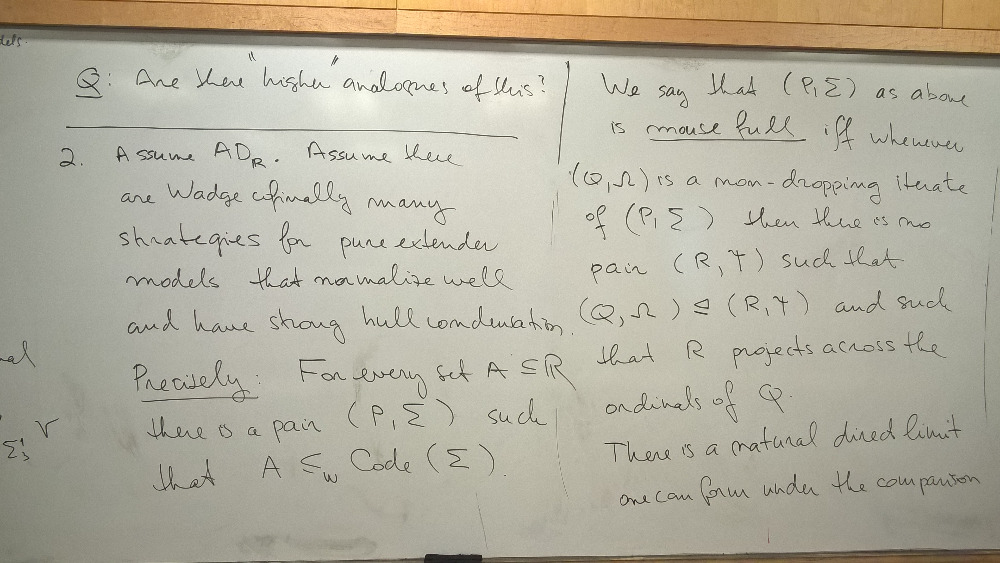 dels.
Q: Are there "higher" analogues of this?
2. Assume AD_R. Assume there
are Wadge cofinally many
strategies for pure extender
models that normalize well
and have strong hull condensation.
Precisely: For every set A ⊆ ℝ
there is a pair (P, Σ) such
that A ≤_w Code (Σ).
al
Σ^1_3
V
We say that (P, Σ) as above
is mouse full iff whenever
(Q, Ω) is a non-dropping iterate
of (P, Σ) then there is no
pair (R, Ψ) such that
(Q, Ω) ⊴ (R, Ψ) and such
that R projects across the
ordinals of Q.
There is a natural direct limit
one can form under the comparison